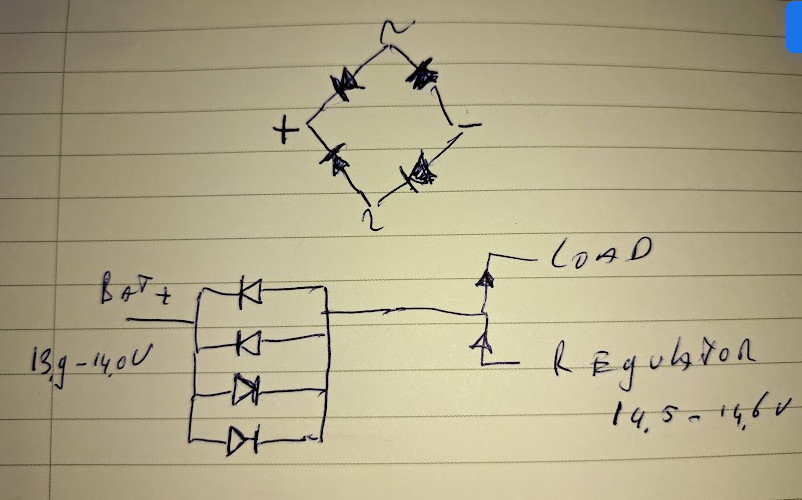 ~
+ -
~
LOAD
BAT +
13,9-14,0V
REgulATOR
14,5-14,6V